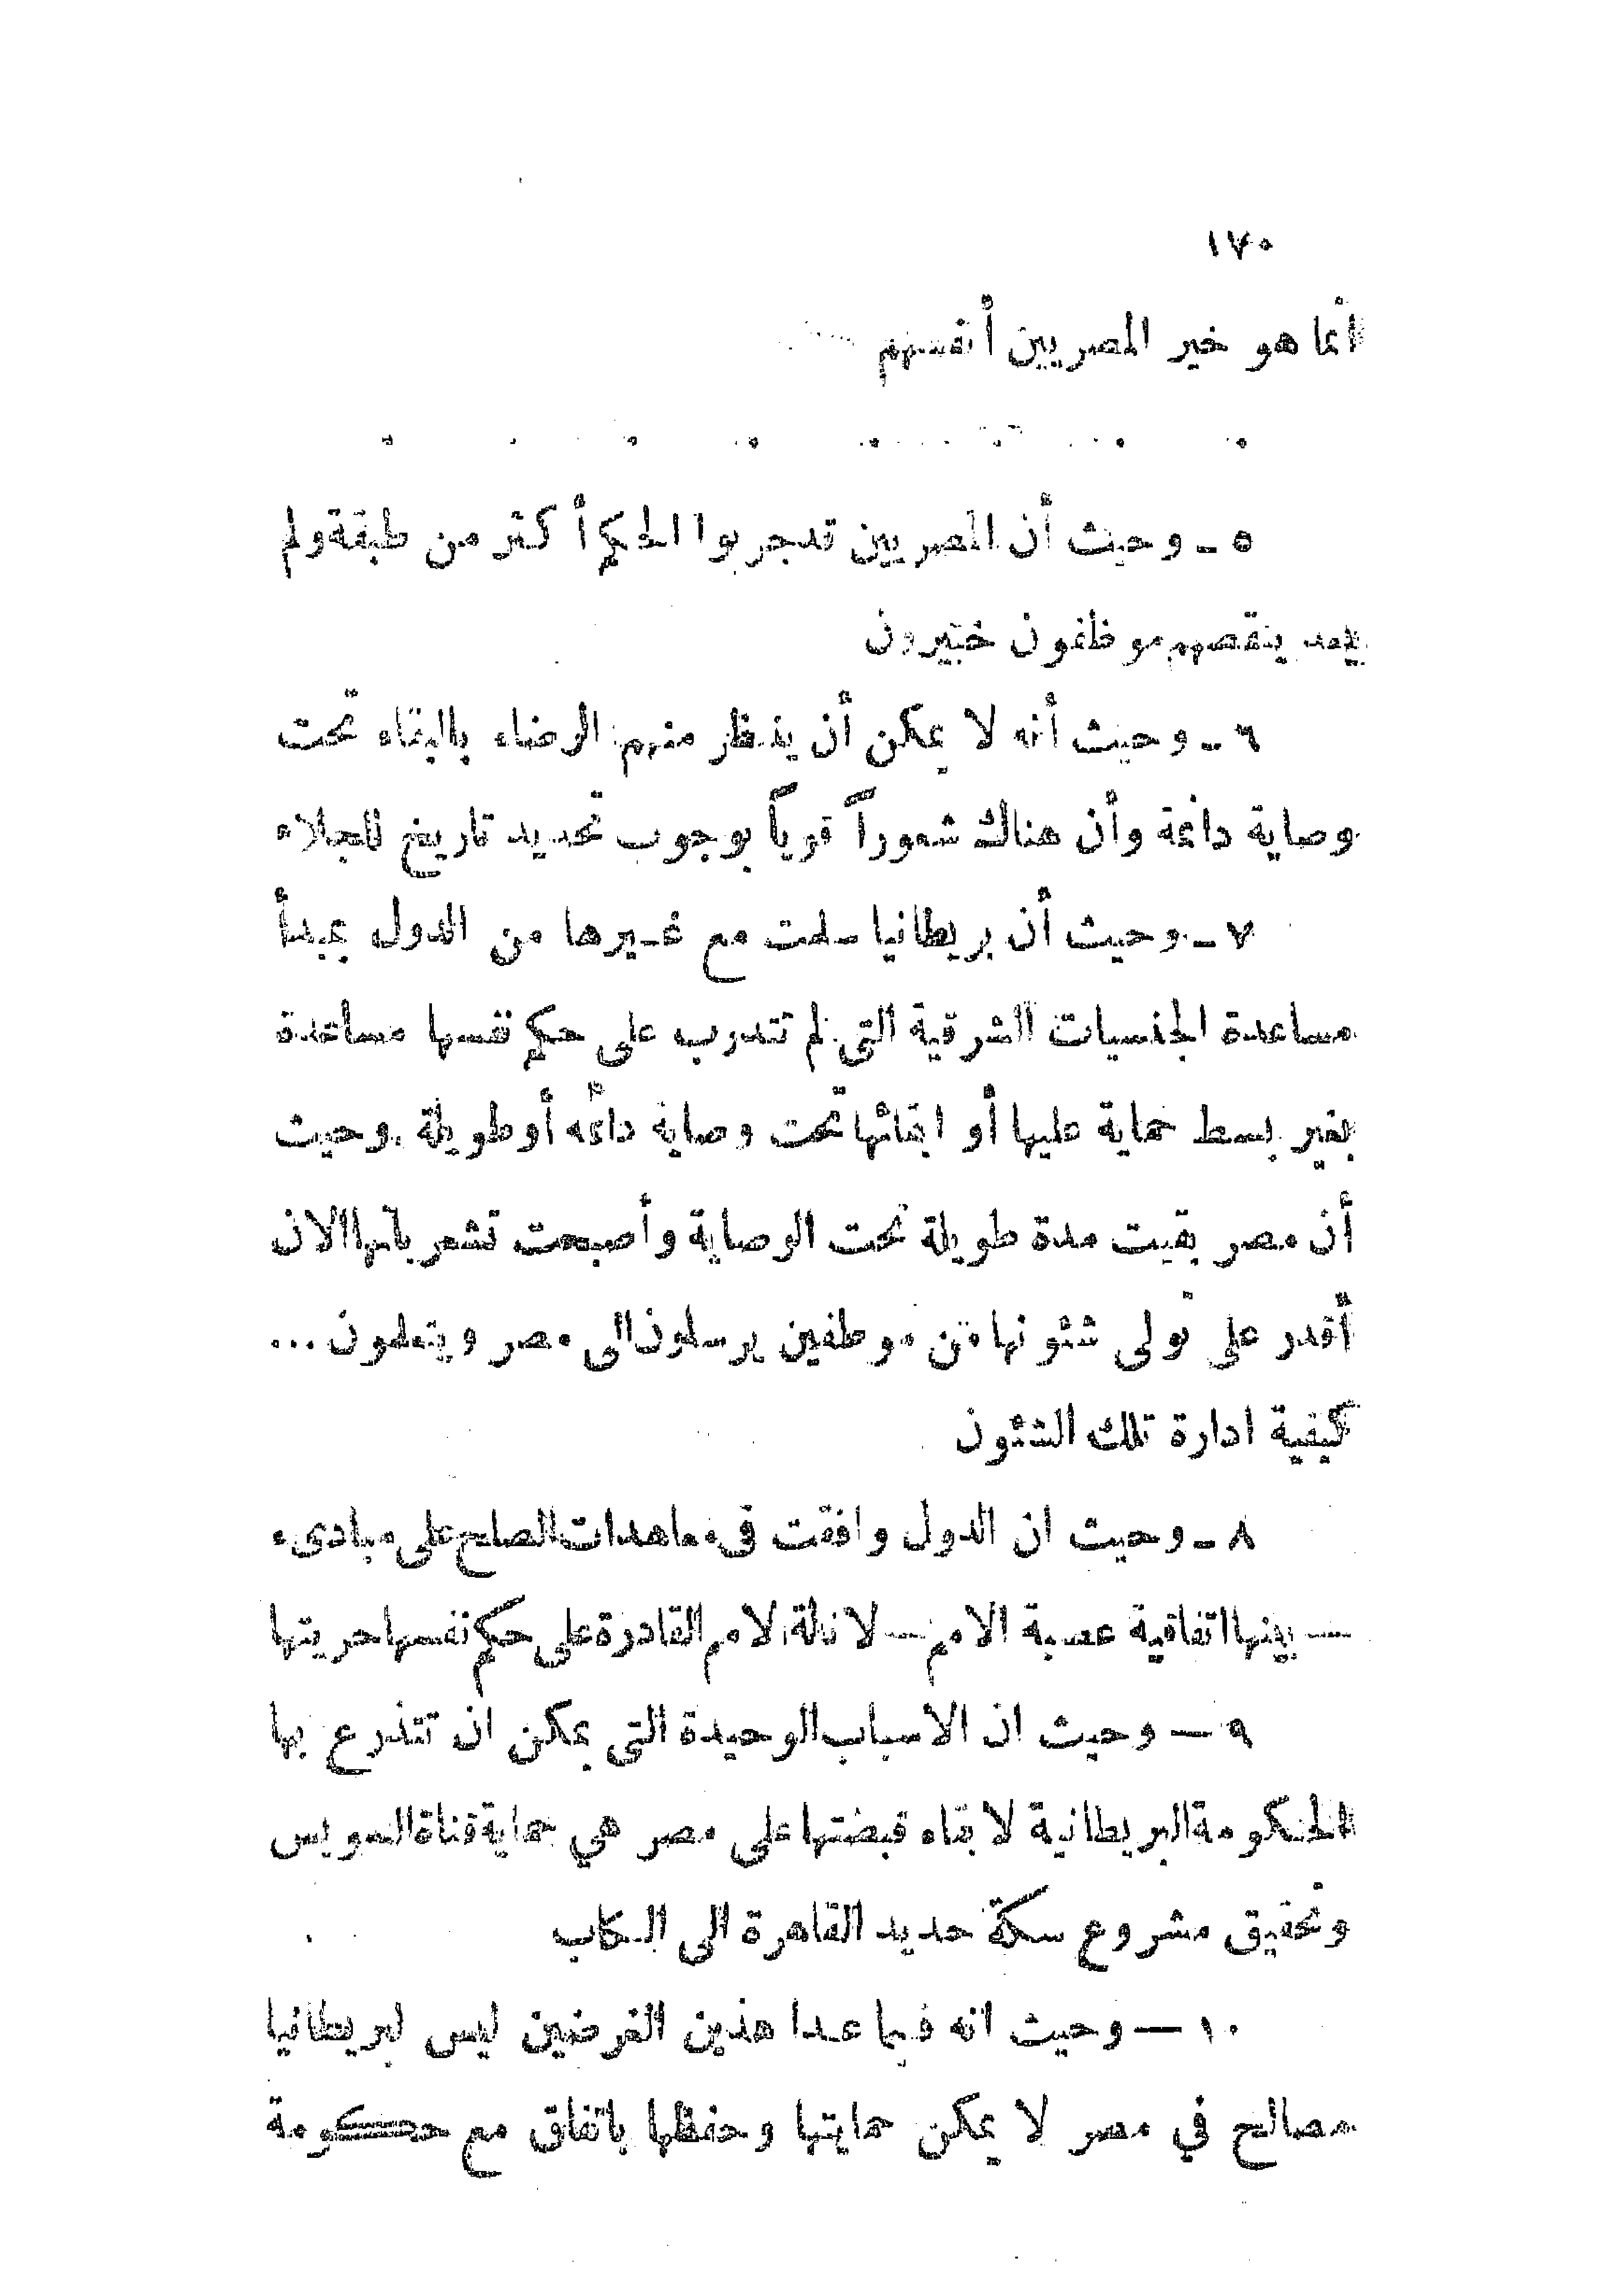 ١٧٠
انما هو خير المصريين أنفسهم
. . . . . . . .
٥ ـ وحيث أن المصريين قد جربوا الحكم أكثر من طبقة ولم
يعد ينقصهم موظفون خبيرون
٦ ـ وحيث أنه لا يمكن أن ينظر منهم الرضاء بالبقاء تحت
وصاية دائمة وأن هناك شعوراً قوياً بوجوب تحديد تاريخ للجلاء
٧ ـ وحيث أن بريطانيا سلمت مع غيرها من الدول بمبدأ
مساعدة الجنسيات الشرقية التى لم تتدرب على حكم نفسها مساعدة
بغير بسط حماية عليها أو ابقائها تحت وصاية دائمه أو طويلة . وحيث
أن مصر بقيت مدة طويلة تحت الوصاية وأصبحت تشعر بأنها الان
أقدر على تولى شئونها من موظفين يرسلون الى مصر ويتعلمون ...
كيفية ادارة تلك الشئون
٨ ـ وحيث ان الدول وافقت فى معاهدات الصلح على مبادىء
— بينها اتفاقية عصبة الامم — لانالة الامم القادرة على حكم نفسها حريتها
٩ — وحيث ان الاسباب الوحيدة التى يمكن ان تتذرع بها
الحكومة البريطانية لابقاء قبضتها على مصر هي حماية قناة السويس
وتحقيق مشروع سكة حديد القاهرة الى الكاب
١٠ — وحيث انه فيما عدا هذين الغرضين ليس لبريطانيا
مصالح في مصر لا يمكن حمايتها وحفظها باتفاق مع حكومة